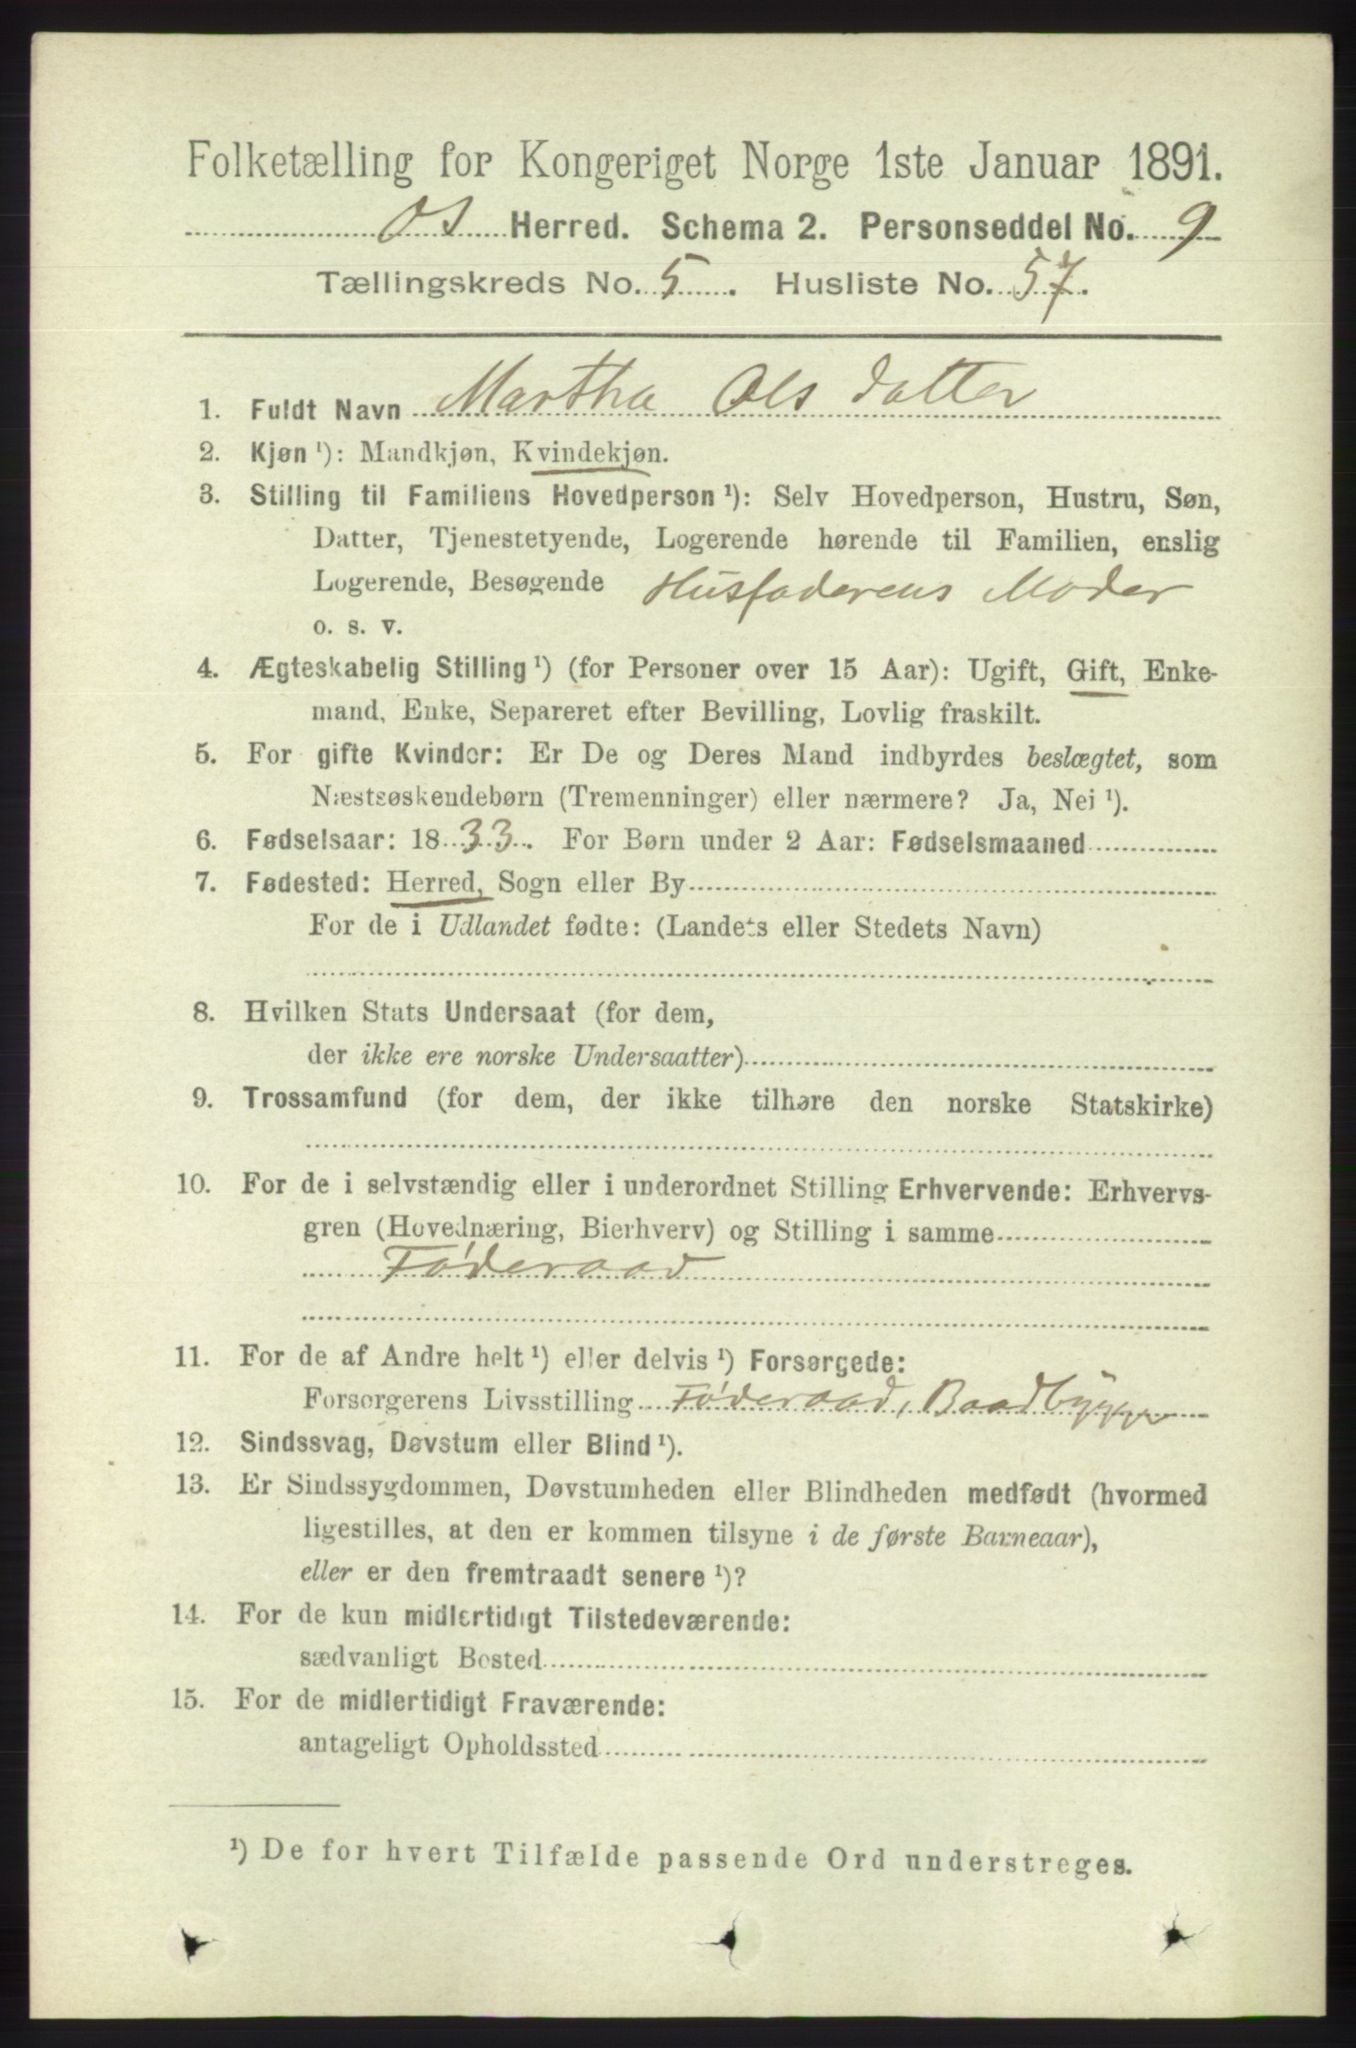 Folketælling for Kongeriget Norge 1ste Januar 1891.
Os Herred. Schema 2. Personseddel No. 9
Tællingskreds No. 5. Husliste No. 57.
1. Fuldt Navn Martha Ols datter
2. Kjøn ¹): Mandkjøn, Kvindekjøn.
3. Stilling til Familiens Hovedperson ¹): Selv Hovedperson, Hustru, Søn,
Datter, Tjenestetyende, Logerende hørende til Familien, enslig
Logerende, Besøgende Husfaderens Moder
o. s. v.
4. Ægteskabelig Stilling ¹) (for Personer over 15 Aar): Ugift, Gift, Enke-
mand, Enke, Separeret efter Bevilling, Lovlig fraskilt.
5. For gifte Kvinder: Er De og Deres Mand indbyrdes beslægtet, som
Næstsøskendebørn (Tremenninger) eller nærmere? Ja, Nei ¹).
6. Fødselsaar: 1833. For Børn under 2 Aar: Fødselsmaaned
7. Fødested: Herred, Sogn eller By
For de i Udlandet fødte: (Landets eller Stedets Navn)
8. Hvilken Stats Undersaat (for dem,
der ikke ere norske Undersaatter)
9. Trossamfund (for dem, der ikke tilhøre den norske Statskirke)
10. For de i selvstændig eller i underordnet Stilling Erhvervende: Erhvervs-
gren (Hovednæring, Bierhverv) og Stilling i samme
Føderaad
11. For de af Andre helt ¹) eller delvis ¹) Forsørgede:
Forsørgerens Livsstilling Føderaad, Baadbygger
12. Sindssvag, Døvstum eller Blind ¹).
13. Er Sindssygdommen, Døvstumheden eller Blindheden medfødt (hvormed
ligestilles, at den er kommen tilsyne i de første Barneaar),
eller er den fremtraadt senere ¹)?
14. For de kun midlertidigt Tilstedeværende:
sædvanligt Bosted
15. For de midlertidigt Fraværende:
antageligt Opholdssted
¹) De for hvert Tilfælde passende Ord understreges.